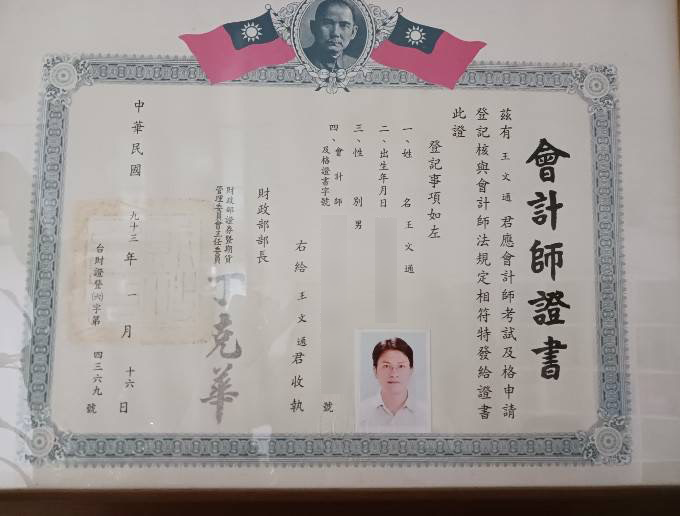 會計師證書
茲有 王文通 君應會計師考試及格申請
登記核與會計師法規定相符特發給證書
此證
登記事項如左
一、姓名 王文通
二、出生年月日
三、性別 男
四、會計師
及格證書字號
號
右給 王文通 君收執
財政部部長
財政部證券暨期貨
管理委員會主任委員
丁克華
中華民國 九十三年 一月 十六日
台財證登㈥字第 四三六九 號